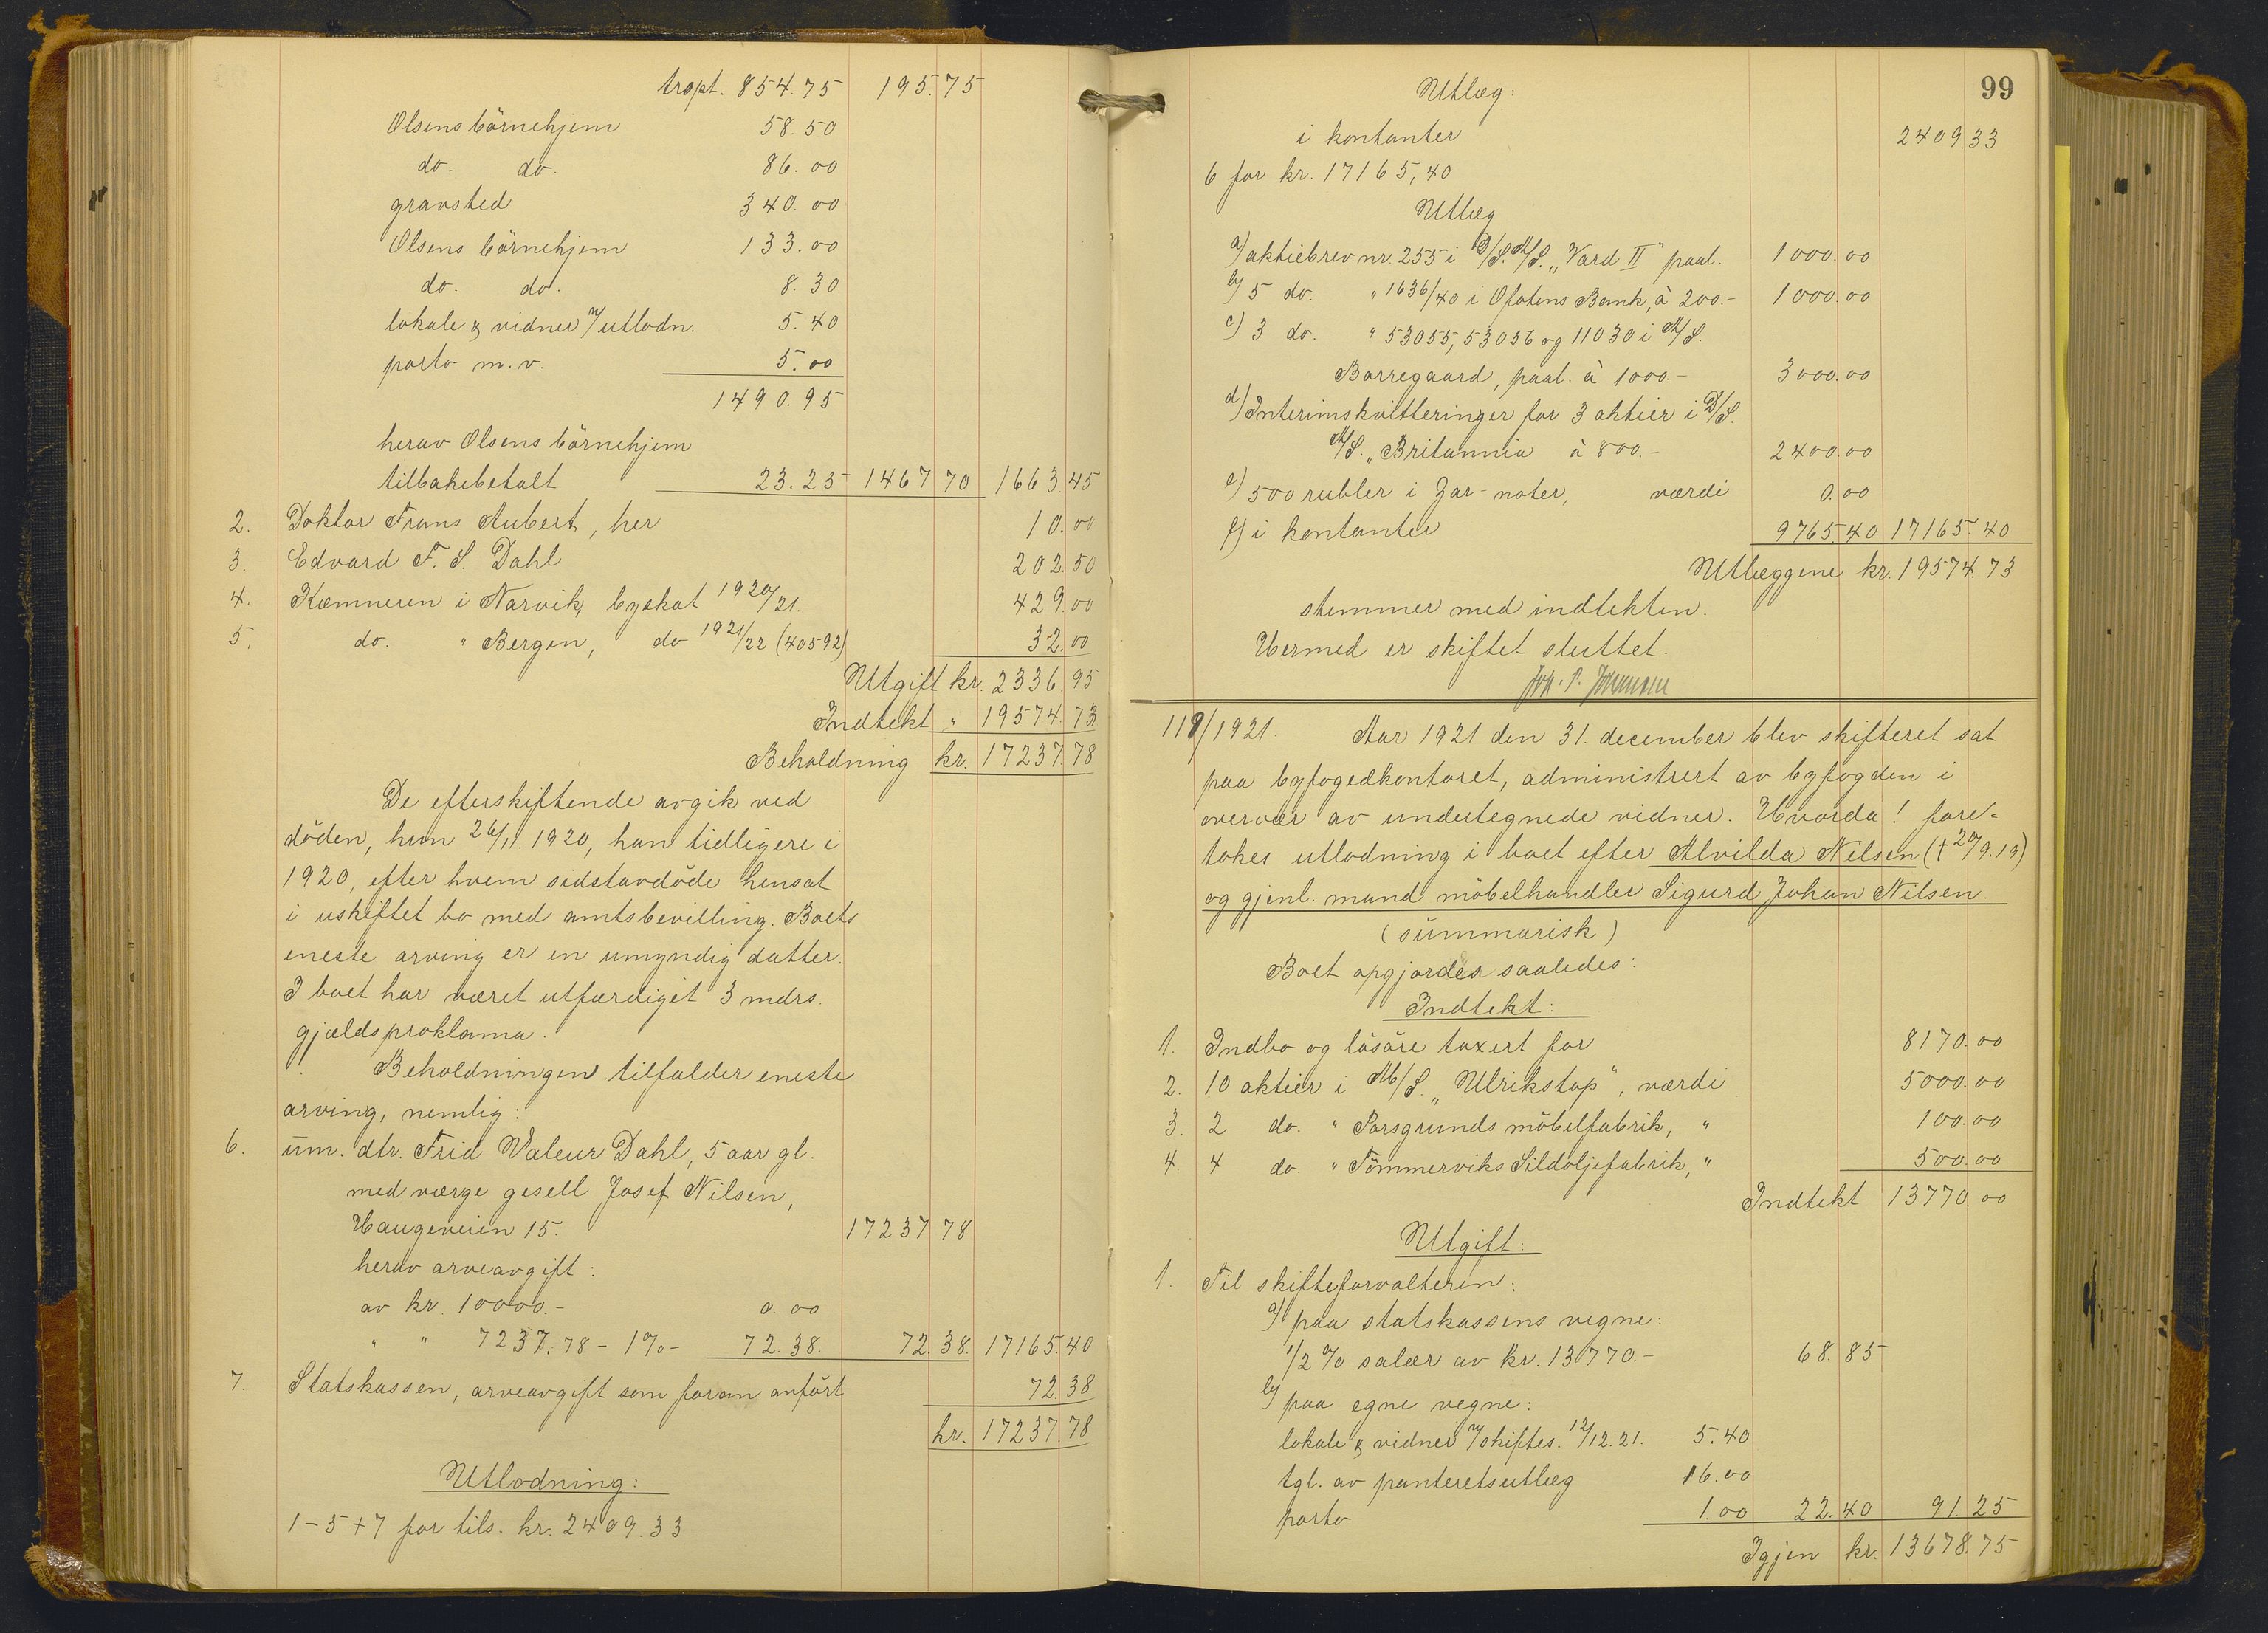 trspt. 854.75 195.75
Olsens börnehjem 58.50
do. do. 86.00
gravsted 340.00
Olsens börnehjem 133.00
do. do. 8.30
lokale & vidner v/utlodn. 5.40
porto m.v. 5.00
1490.95
herav Olsens börnehjem
tilbakebetalt 23.25 1467 70 1663.45
2. Doktor Frans Aubert, her 10.00
3. Edvard F. S. Dahl 202.50
4. Kæmneren i Narvik, byskat 1920/21. 429.00
5. do. " Bergen, do 1921/22 (40592) 32.00
Utgift kr. 2336.95
Indtekt " 19574.73
Beholdning kr. 17237.78
De efterskiftende avgik ved
döden, hun 26/11.1920, han tidligere i
1920, efter hvem sidstavdöde hensat
i uskiftet bo med amtsbevilling. Boets
eneste arving er en umyndig datter.
I boet har været utfærdiget 3 mdrs.
gjældsproklama.
Beholdningen tilfalder eneste
arving, nemlig:
6. um. dtr. Frid Valeur Dahl, 5 aar gl.
med værge gesell Josef Nilsen,
Haugeveien 15. 17237 78
herav arveavgift:
av kr. 10000.- 0.00
" " 7237.78 - 1% - 72.38. 72.38. 17165.40
7. Statskassen, arveavgift som foran anfört 72.38
kr. 17237.78
Utlodning:
1-5+7 for tils. kr. 2409.33
99
Utlæg:
i kontanter 2409.33
6 for kr. 17165,40
Utlæg
a) aktiebrev nr. 255 i D/S. A/S. „Vard II" paal. 1000.00
b) 5 do. " 1636/40 i Ofotens Bank, à 200.- 1000.00
c) 3 do. " 53055, 53056 og 11030 i A/S.
Borregaard, paal. à 1000.- 3000.00
d) Interimskvitteringer for 3 aktier i D/S.
A/S. „Britannia à 800.- 2400.00
e) 500 rubler i Zar-noter, værdi 0.00
f) i kontanter 9765.40 17165.40
Utlæggene kr. 19574.73
stemmer med indtekten.
Hermed er skiftet sluttet.
119/1921. Aar 1921 den 31. december blev skifteret sat
paa byfogedkontoret, administrert av byfogden i
overvær av undertegnede vidner. Hvorda! fore-
tokes utlodning i boet efter Alvilda Nilsen († 20/9.19)
og gjenl. mand möbelhandler Sigurd Johan Nilsen.
(summarisk)
Boet opgjordes saaledes:
Indtekt:
1. Indbo og lösöre taxert for 8170.00
2. 10 aktier i M/S. „Ulrikstop", værdi 5000.00
3. 2 do. " Porsgrunds möbelfabrik, " 100.00
4. 4 do. " Tömmerviks Sildoljefabrik, " 500.00
Indtekt 13770.00
Utgift:
1. Til skifteforvalteren:
a) paa statskassens vegne:
1/2 % salær av kr. 13770.- 68.85
b) paa egne vegne:
lokale & vidner v/skiftes. 12/12.21. 5.40
tgl. av panteretsutlæg 16.00
porto 1.00 22.40 91.25
Igjen kr. 13678.75